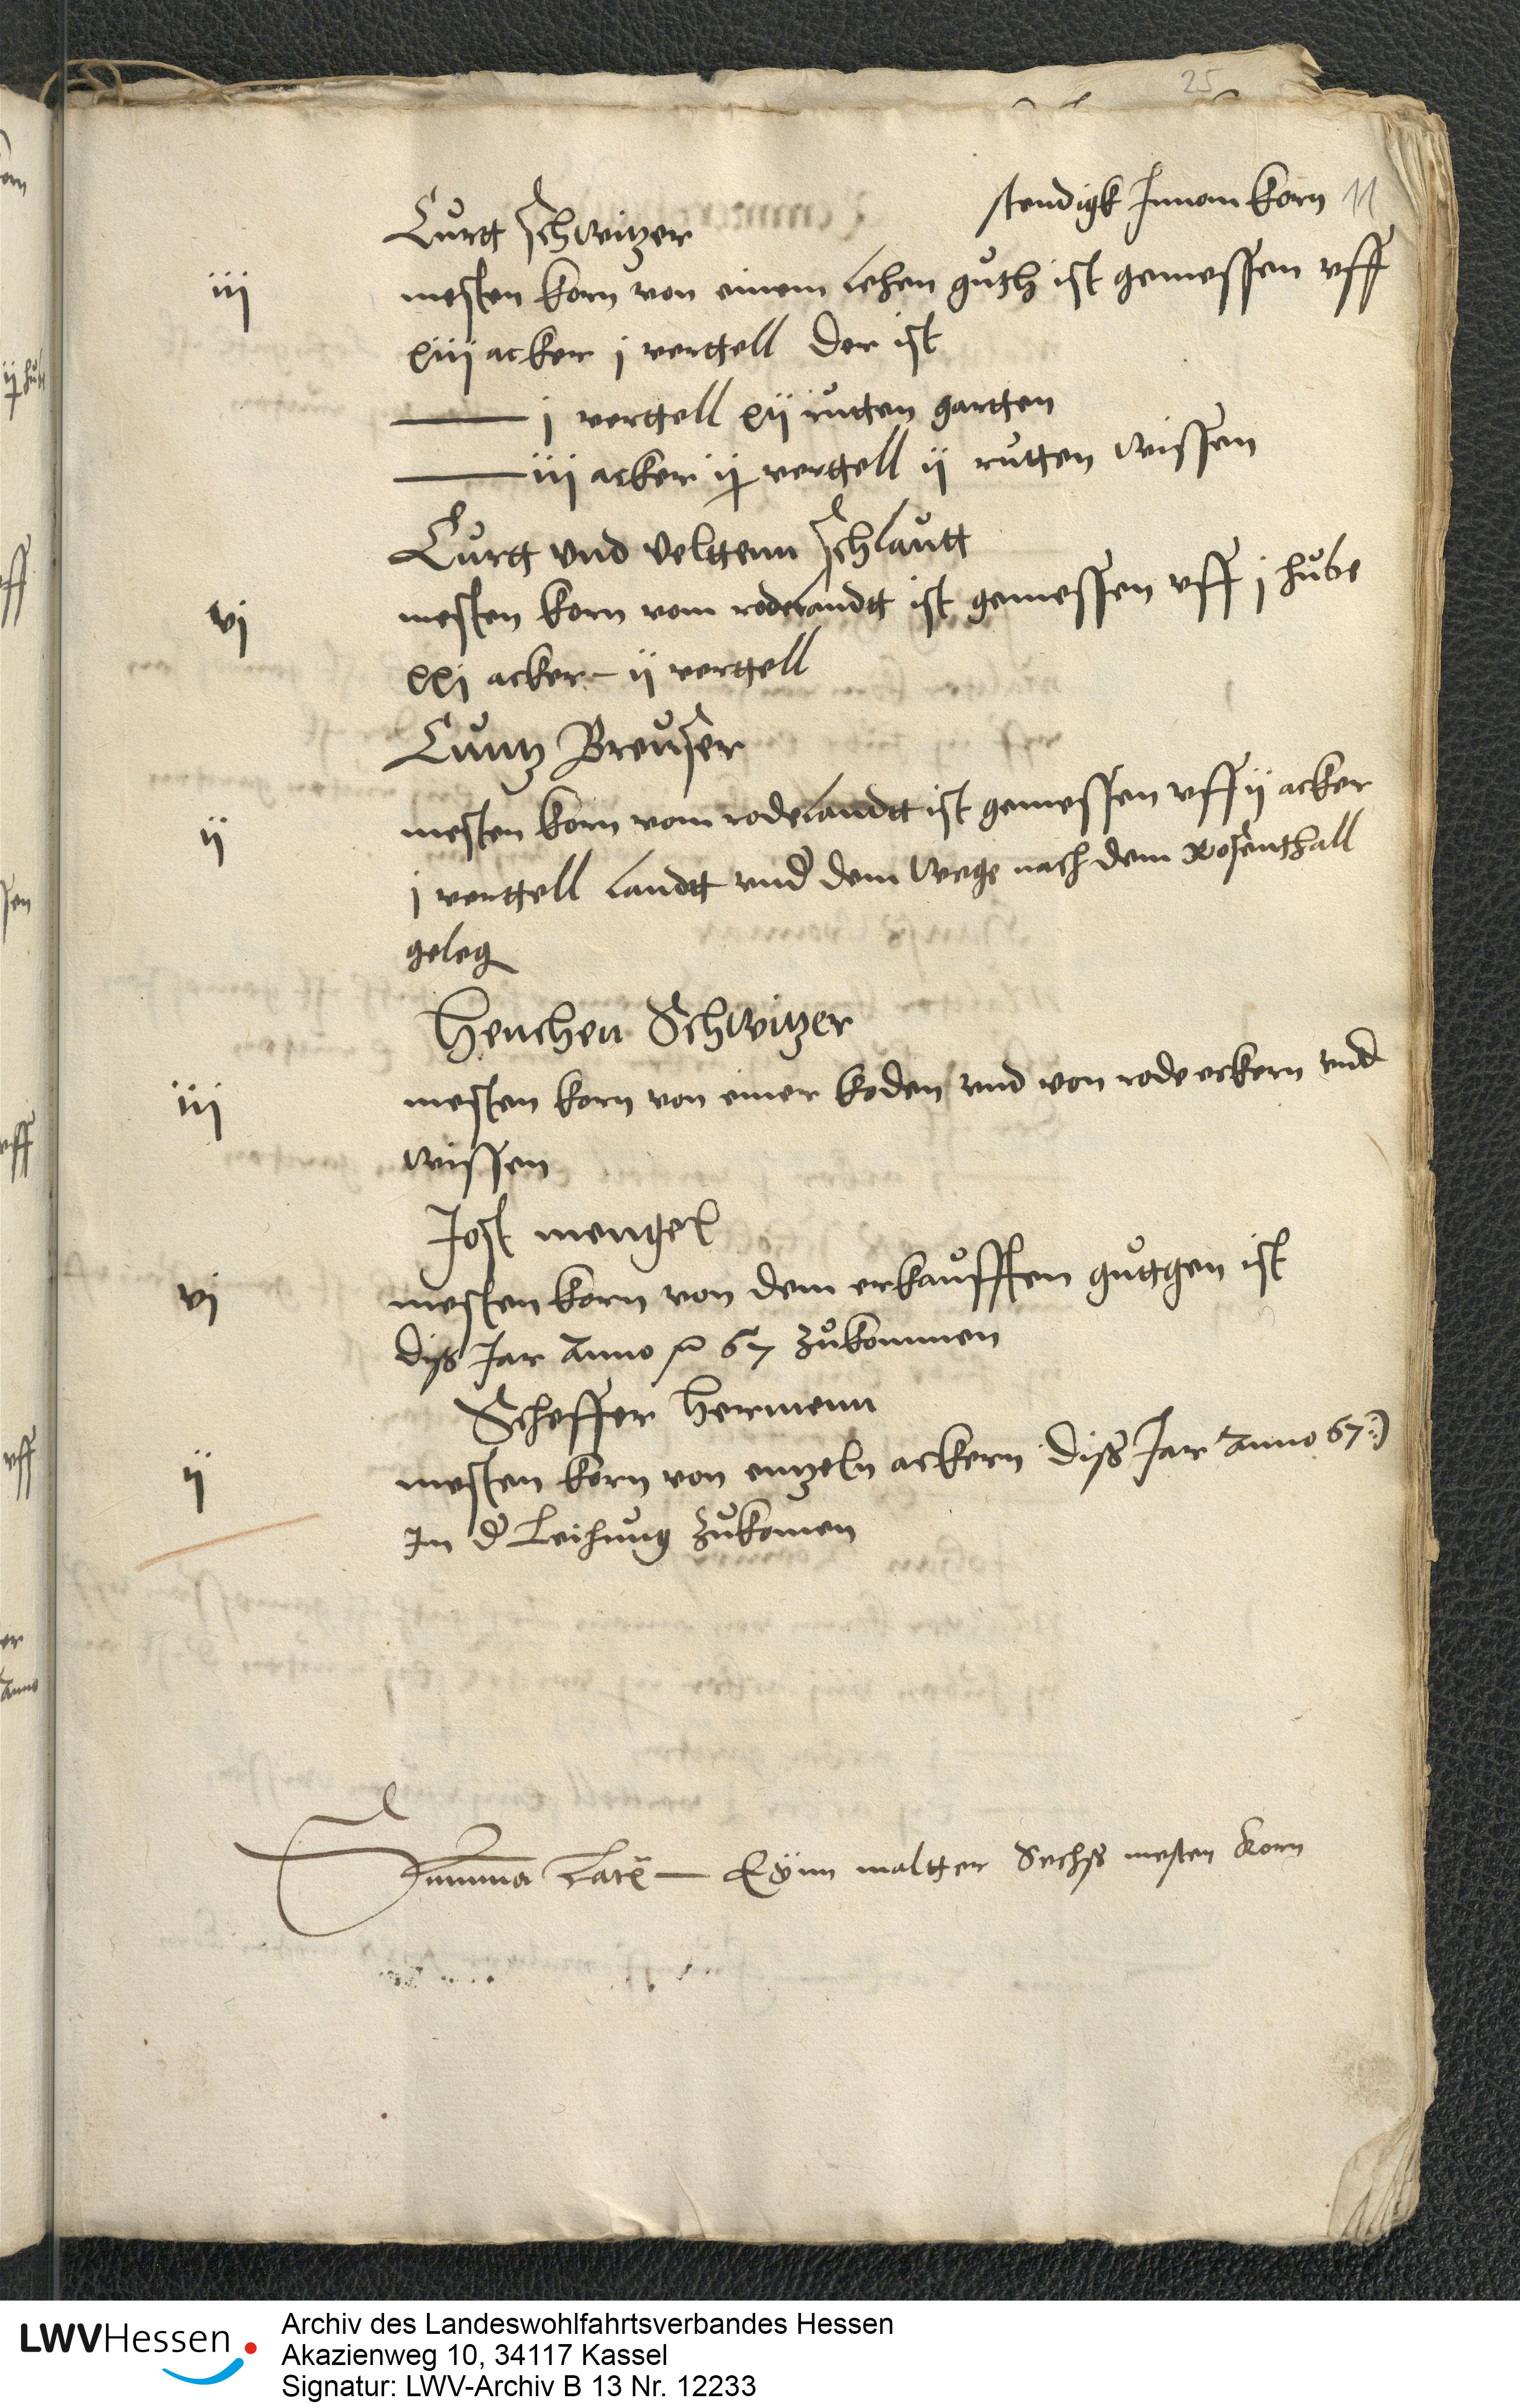 25
stendigk Innom korn 11
Curtt Schwitzer
iii mesten korn von einem lehen guth ist gemessen vff
xiiij acker j vertell der ist
— j vertell xij rutten gartten
— iij acker ij vertell ij rutten wissen
Curtt vnd Veltenn Schlautt
vj mesten korn vom rodelandtt ist gemessen vff j hube
xxj acker – ij vertell
Cuntz Breuser
ij mesten korn vom rodelandtt ist gemessen vff ij acker
j vertell landtt vnd dem wege nach dem Rosenthall
geleg
Henchen Schwitzer
iij mesten korn von einer koden vnd von rode eckern vnd
wissen
Jost mengel
vj mesten korn von dem erkaufften guttgen ist
diß Jar Anno 67 zukommen
Scheffer Hermenn
ij mesten korn von entzeln ackern diß Jar Anno 67
In d Leihung zukomen
Summa Lat — Eynn maltter Sechß mesten korn
LWVHessen
Archiv des Landeswohlfahrtsverbandes Hessen
Akazienweg 10, 34117 Kassel
Signatur: LWV-Archiv B 13 Nr. 12233